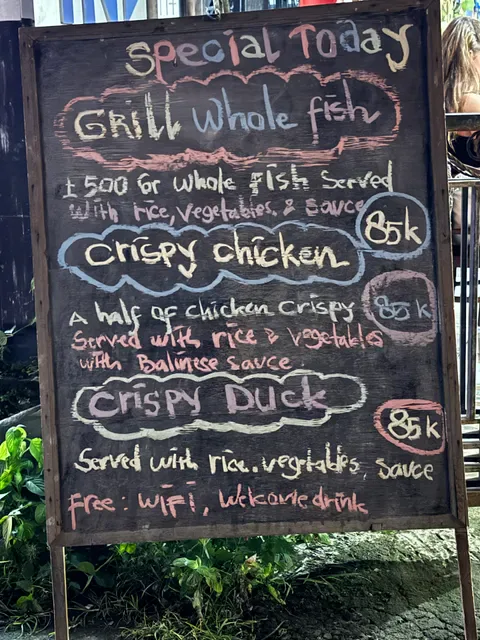 Special Today
Grill Whole fish
± 500 Gr Whole Fish Served
With rice, vegetables, & Sauce
85k
crispy chicken
A half of chicken crispy
85k
Served with rice & vegetables
with Balinese sauce
crispy Duck
85k
Served with rice. vegetables, sauce
Free : WiFi, Welcome drink